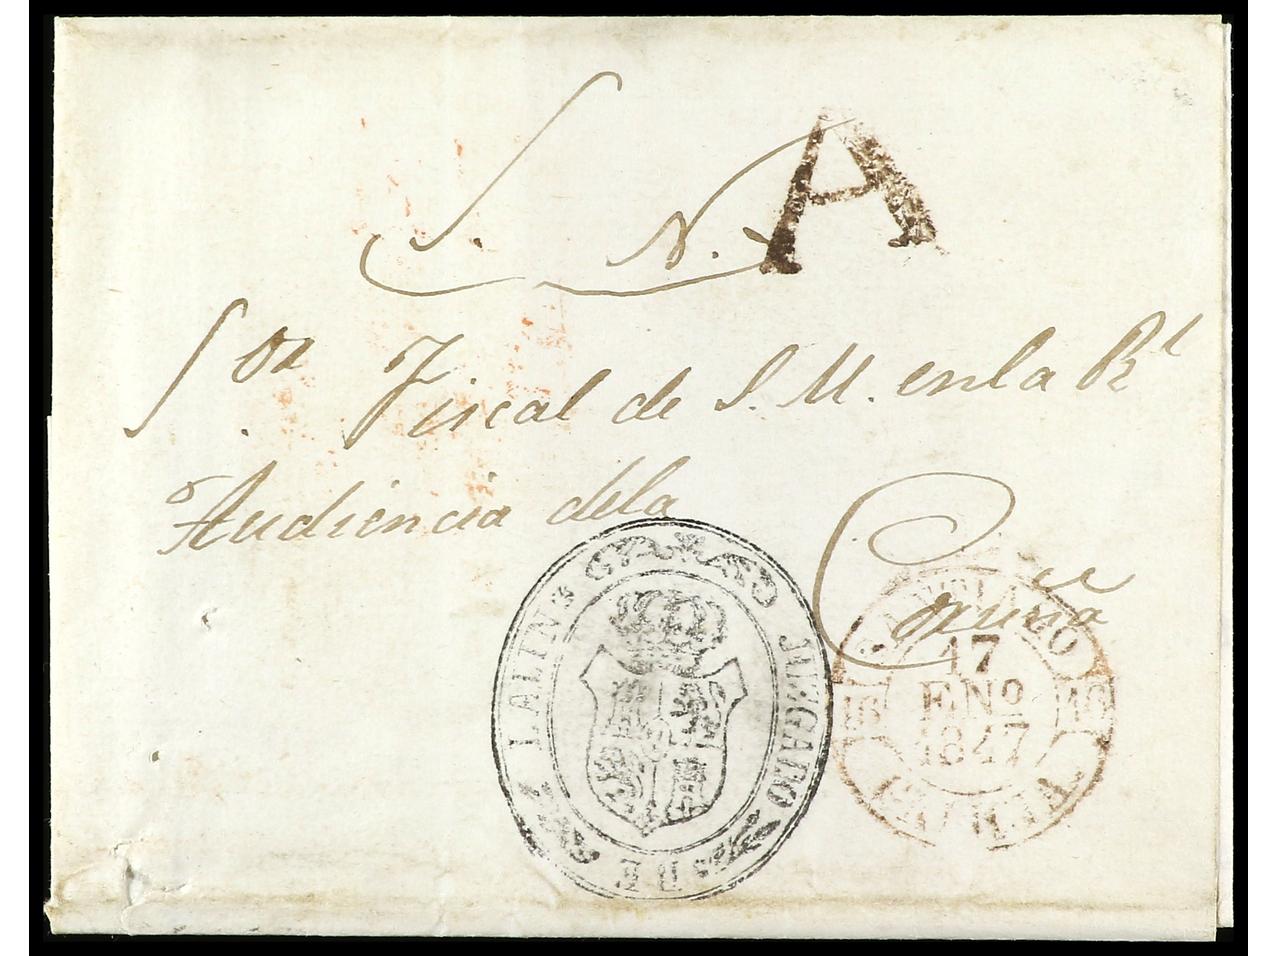 S. N. A
Sor. Fiscal de S. M. en la Rl
Audiencia dela
Coruña
JUZGADO DE LALIN
SANTIAGO
17
ENO
1847
16 16